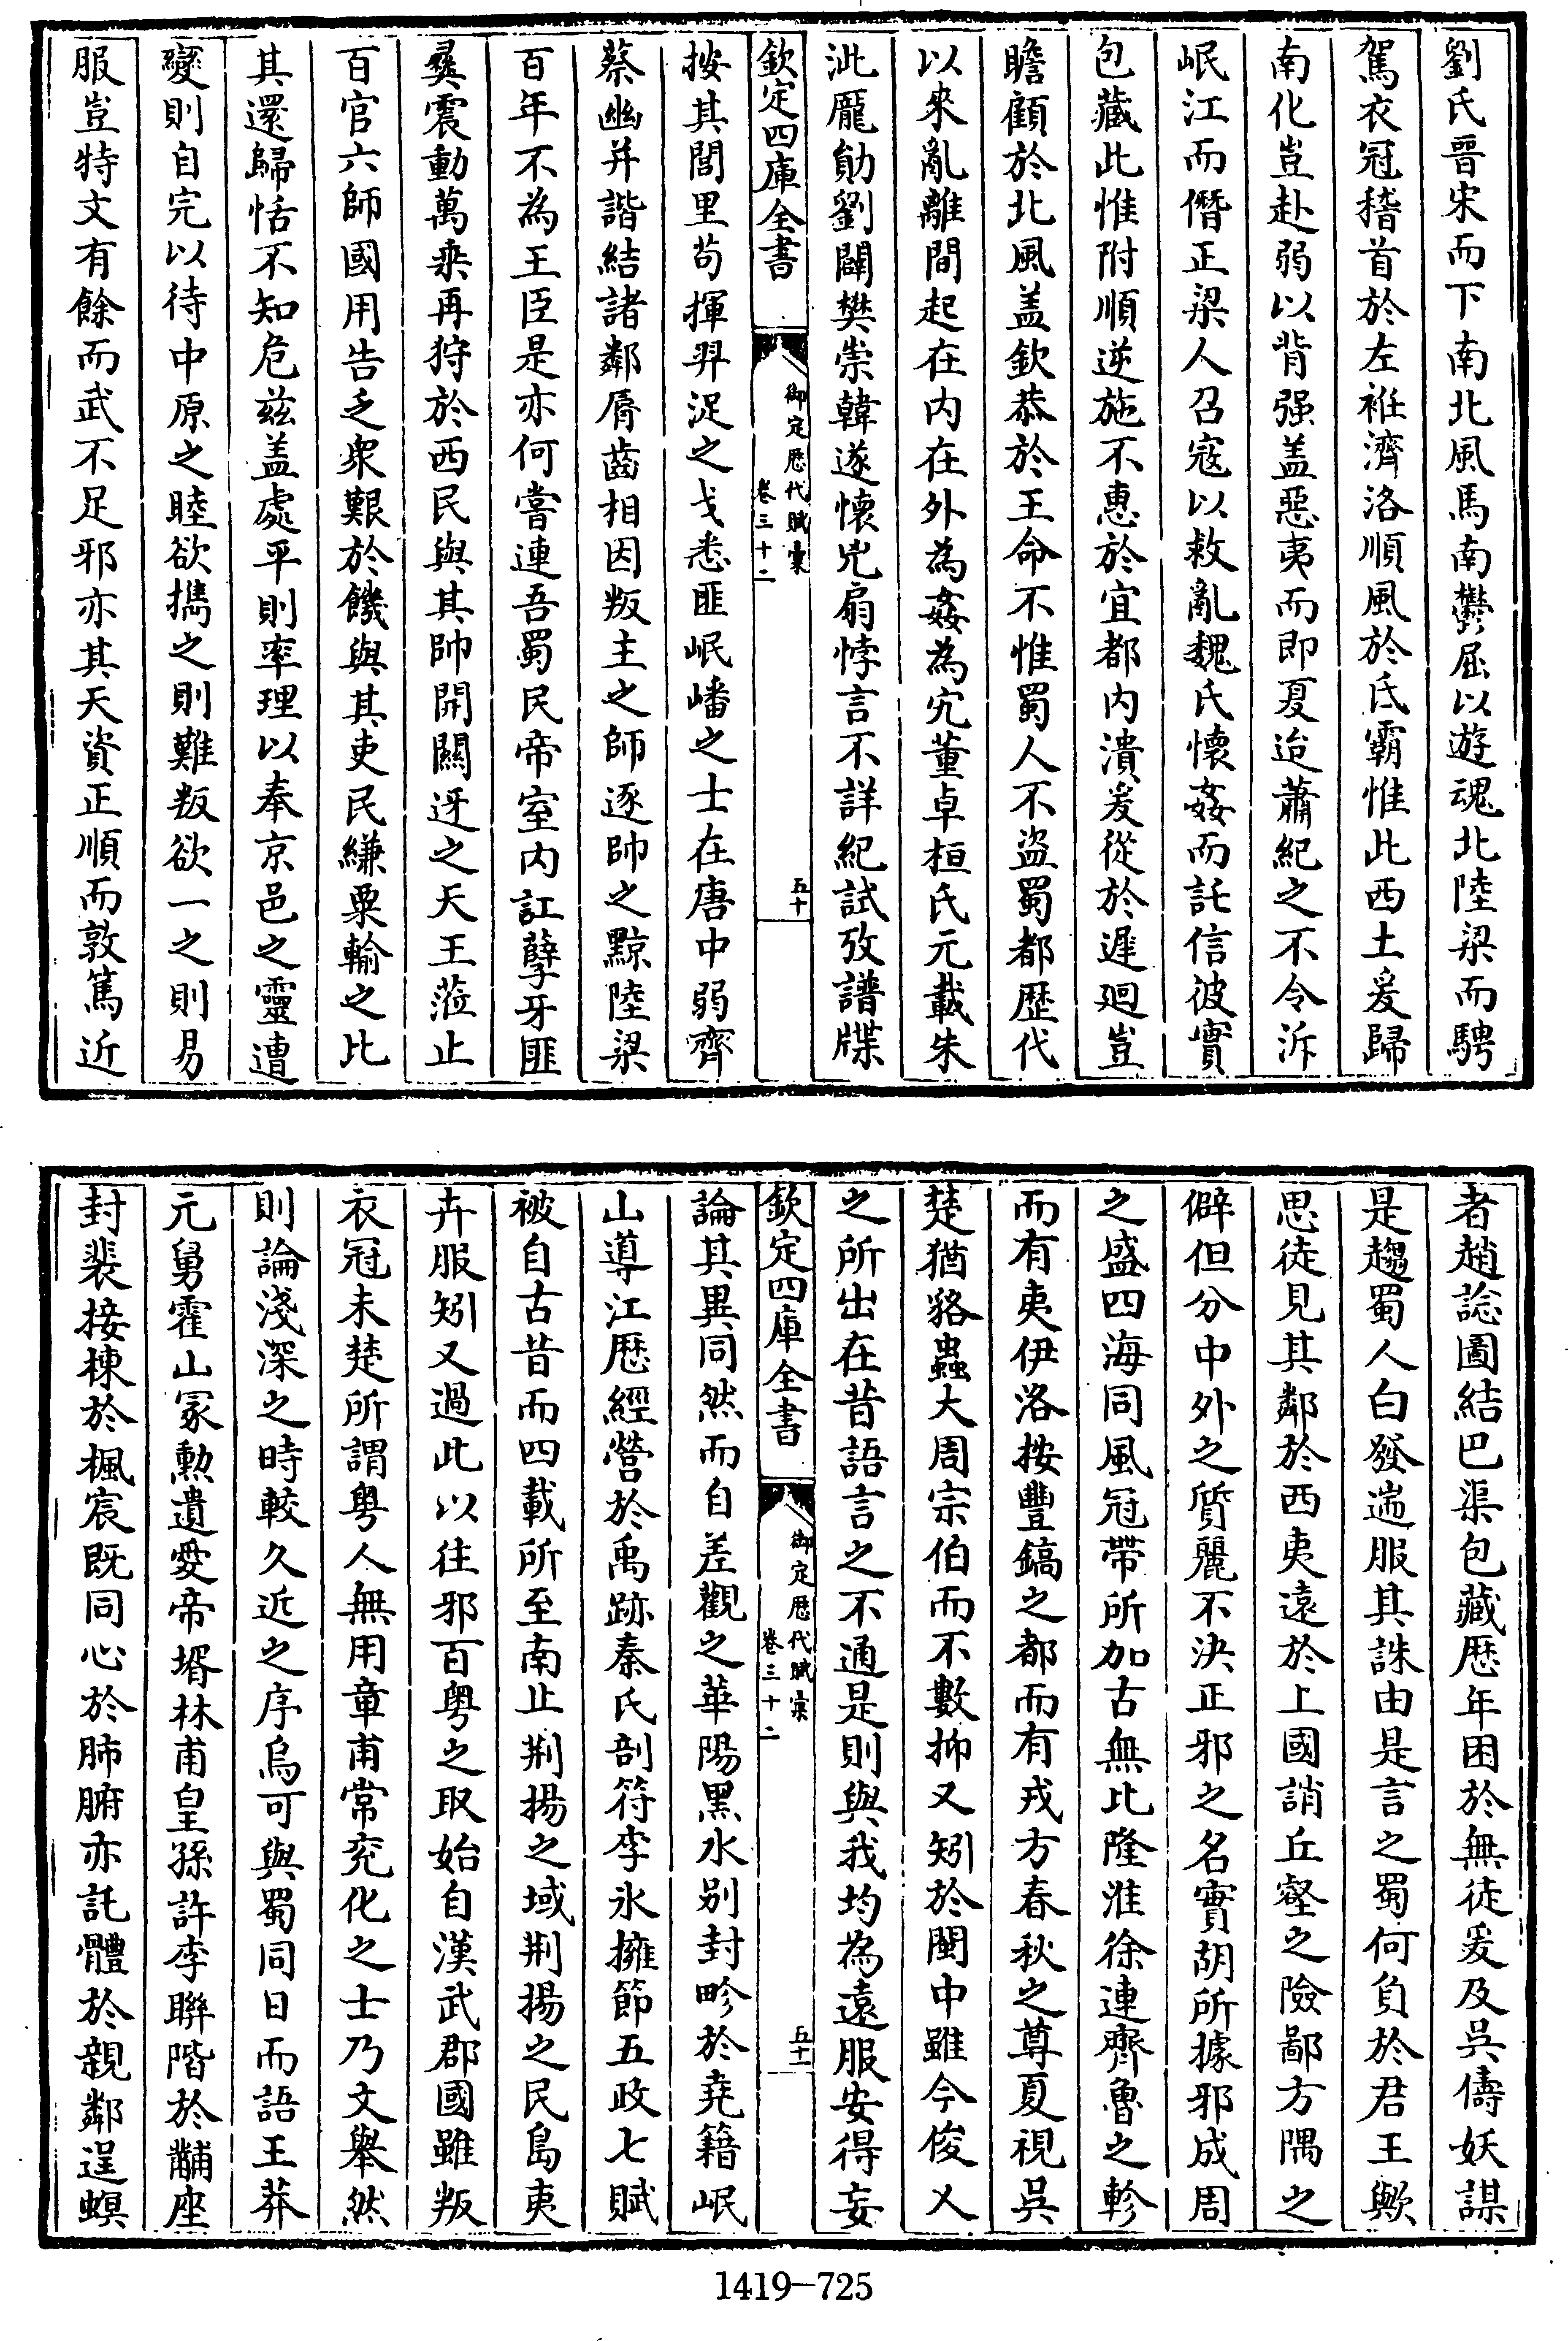 劉氏晉宋而下南北風馬南鬱屈以遊魂北陸梁而騁
駕衣冠稽首於左袵濟洛順風於氐霸惟此西土爰歸
南化豈赴弱以背强盖惡夷而即夏迨蕭紀之不令泝
岷江而僭正梁人召寇以救亂魏氏懷姦而託信彼實
包藏此惟附順逆施不惠於宜都内潰爰從於遲廻豈
瞻顧於北風盖欽恭於王命不惟蜀人不盜蜀都歴代
以來亂離間起在内在外為姦為宄董卓桓氏元載朱
泚龎勛劉闢樊崇韓遂懷兇扇悖言不詳紀試攷譜牒
欽定四庫全書
御定歴代賦彚
卷三十二
五十
按其閭里茍揮羿浞之戈悉匪岷嶓之士在唐中弱齊
蔡幽并諧結諸鄰脣齒相因叛主之師逐帥之黥陸梁
百年不為王臣是亦何嘗連吾蜀民帝室内訌孽牙匪
彛震動萬乘再狩於西民與其帥開關迓之天王蒞止
百官六師國用告乏衆艱於饑與其吏民縑粟輸之比
其還歸恬不知危兹盖處平則率理以奉京邑之靈遭
變則自完以待中原之睦欲擕之則難叛欲一之則易
服豈特文有餘而武不足邪亦其天資正順而敦篤近
者趙諗圖結巴渠包藏歴年困於無徒爰及吳儔妖謀
是趨蜀人白發遄服其誅由是言之蜀何負於君王歟
思徒見其鄰於西夷遠於上國誚丘壑之險鄙方隅之
僻但分中外之質麗不決正邪之名實胡所據邪成周
之盛四海同風冠帶所加古無比隆淮徐連齊魯之軫
而有夷伊洛按豐鎬之都而有戎方春秋之尊夏視吳
楚猶貉蟲大周宗伯而不數抑又矧於閩中雖今俊乂
之所出在昔語言之不通是則與我均為遠服安得妄
欽定四庫全書
御定歴代賦彚
卷三十二
五十一
論其異同然而自差觀之華陽黑水别封畛於堯籍岷
山導江歴經營於禹跡秦氏剖符李氷擁節五政七賦
被自古昔而四載所至南止荆揚之域荆揚之民島夷
卉服矧又過此以往邪百粤之取始自漢武郡國雖叛
衣冠未楚所謂粤人無用章甫常兖化之士乃文舉然
則論淺深之時較久近之序烏可與蜀同日而語王莽
元舅霍山冢勲遺愛帝壻林甫皇孫許李聯階於黼座
封裴接棟於楓宸既同心於肺腑亦託體於親鄰逞螟
1419—725